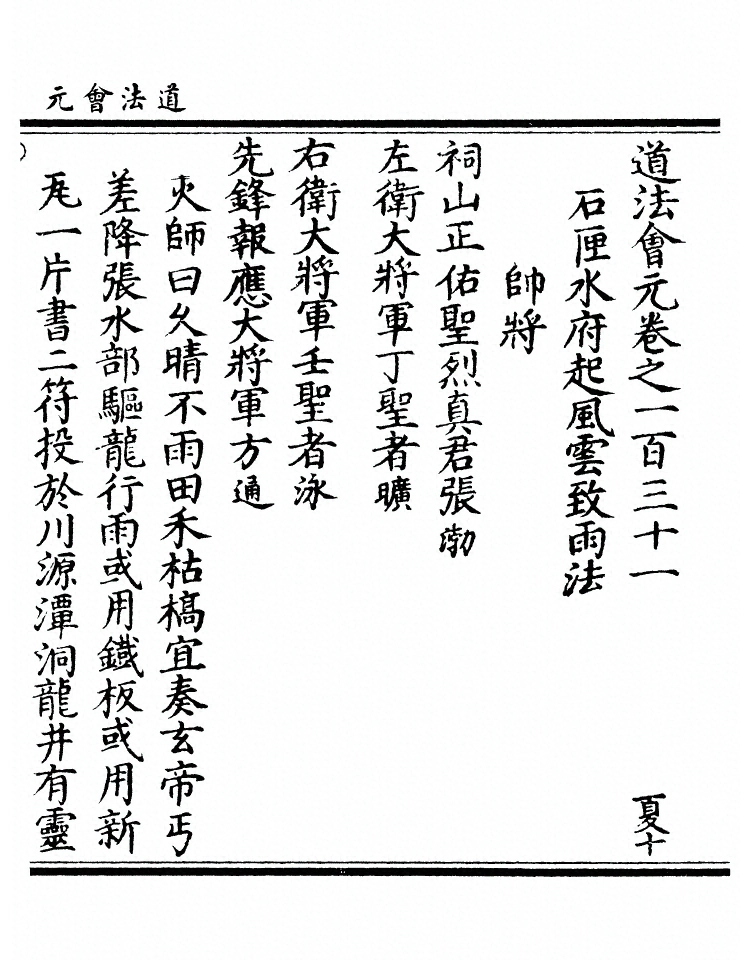 元會法道
道法會元卷之一百三十一 夏十
石匣水府起風雲致雨法
帥將
祠山正佑聖烈真君張渤
左衛大將軍丁聖者曠
右衛大將軍壬聖者泳
先鋒報應大將軍方通
火師曰久晴不雨田禾枯槁宜奏玄帝丐
差降張水部驅龍行雨或用鐵板或用新
瓦一片書二符投於川源潭洞龍井有靈